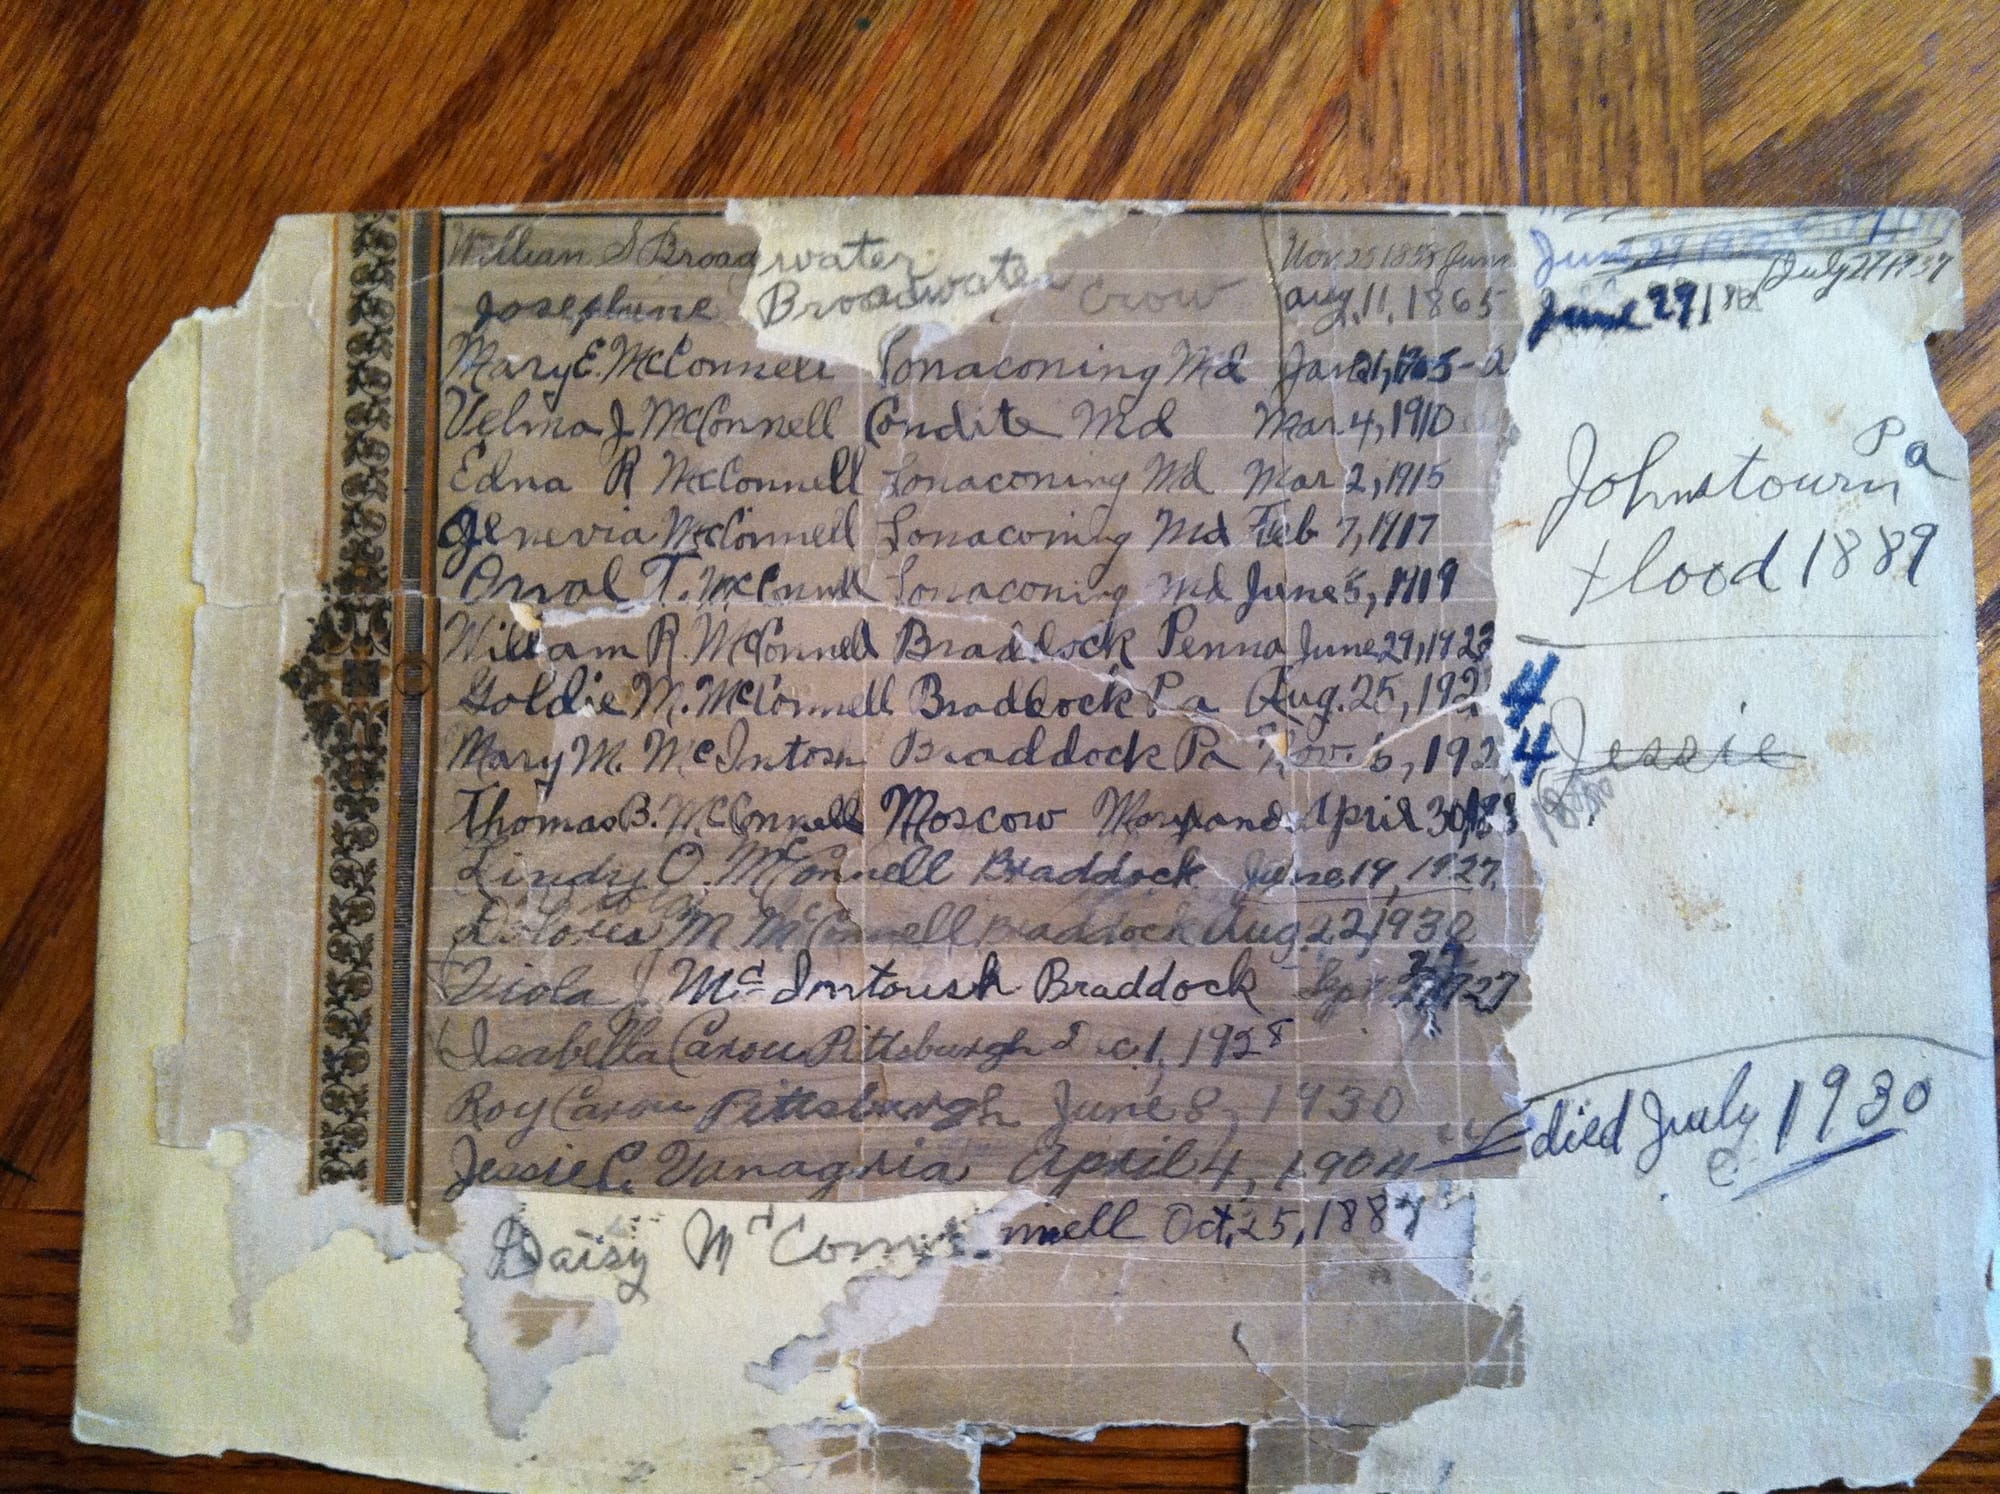 William S Broadwater Nov 25 1858 June
July 27 1937
Josephine Broadwater Crow Aug, 11, 1865
June 29
Mary E. McConnell Lonaconing Md Jan 21,
Velma J McConnell Condite Md Mar 4, 1910
Edna R McConnell Lonaconing Md Mar 2, 1915
Genevia McConnell Lonaconing Md Feb 7, 1917
Orval T. McConnell Lonaconing Md June 5, 1919
William R. McConnell Braddock Penna June 29, 1923
Goldie M. McConnell Braddock Pa Aug. 25, 192 4
Mary M. McIntosh Braddock Pa Nov. 5, 192 4
Thomas B. McConnell Moscow Maryland April 30,
Lindy O. McConnell Braddock June 14, 1927
Dolores M McConnell Braddock Aug. 22, 1930
Viola J McIntoush Braddock 1927
Isabella Carou Pittsburgh Dec 1, 1928
Roy Carou Pittsburgh June 8, 1930
Jessie C. Vanagria April 4, 1904 died July 1930
Daisy McConnell Oct, 25, 1887
Johnstown Pa
flood 1889
Jessie